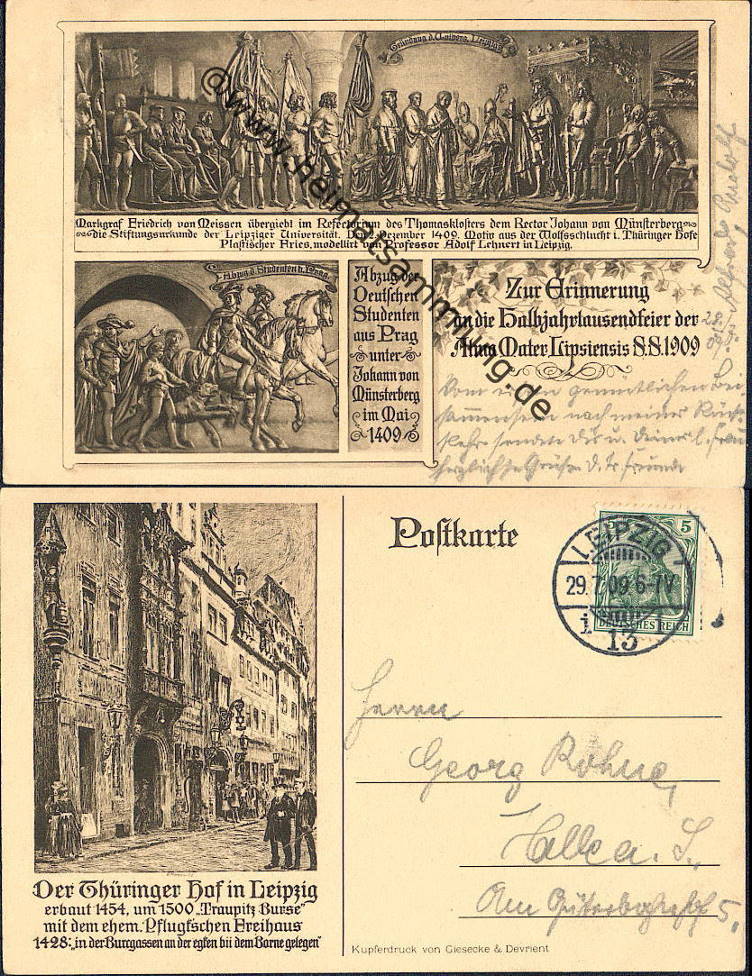 Gründung d. Univers. Leipzig
Markgraf Friedrich von Meissen übergiebt im Refectorium des Thomasklosters dem Rector Johann von Münsterberg
die Stiftungsurkunde der Leipziger Universität. Den 2. Dezember 1409. Motiv aus der Wolfsschlucht i. Thüringer Hofe
Plastischer Fries, modellirt von Professor Adolf Lehnert in Leipzig.
Abzug d. Studenten v. Prag
Abzug der
Deutschen
Studenten
aus Prag
unter
Johann von
Münsterberg
im Mai
1409
Zur Erinnerung
an die Halbjahrtausendfeier der
Alma Mater Lipsiensis 8.8.1909
28./7.
09.
Vom einem gemütlichen Bei
sammensein nach meiner Rück
kehr sendet dir u. deiner l. Frau
herzlichste Grüße d. tr. Freunde
@www.heimatsammlung.de
Postkarte
5 5
LEIPZIG
29.7.09.6-7V.
13
DEUTSCHES REICH
Herrn
Georg Rohne,
Halle a. S.,
Am Güterbahnhof 5.
Der Thüringer Hof in Leipzig
erbaut 1454, um 1500 „Traupitz Burse"
mit dem ehem. Pflugk'schen Freihaus
1428: „in der Burcgassen an der egken bii dem Borne gelegen"
Kupferdruck von Giesecke & Devrient